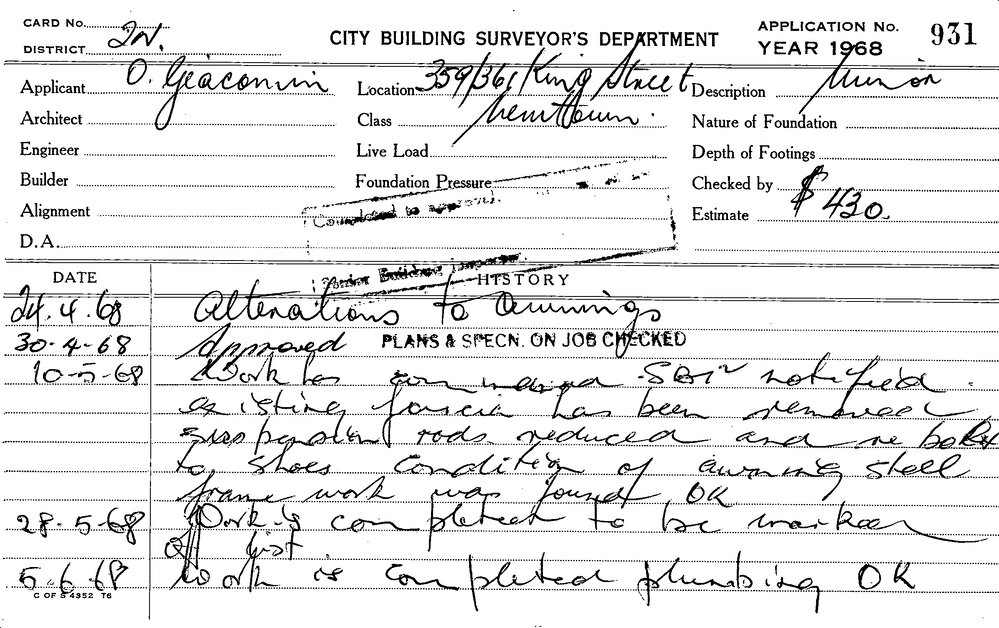 CARD No. 2N.
DISTRICT
CITY BUILDING SURVEYOR'S DEPARTMENT
APPLICATION No. 931
YEAR 1968
Applicant O. Giacomin
Location 359/361 King Street
Description Minor
Architect
Class Newtown.
Nature of Foundation
Engineer
Live Load
Depth of Footings
Builder
Foundation Pressure
Checked by
Alignment
Completed to approval.
Estimate $430.
D.A.
Building Inspector
DATE HISTORY
24.4.68 Alterations to Awnings
30-4-68 Approved PLANS & SPECN. ON JOB CHECKED
10-5-68 Work has commenced notified.
existing fascia has been removed
suspension rods reduced and re bolted
to shoes condition of awning steel
frame work was found OK
28.5.68 Work is completed to be marked
off list
5.6.68 Work is completed plumbing OK
C OF S 4352 T6